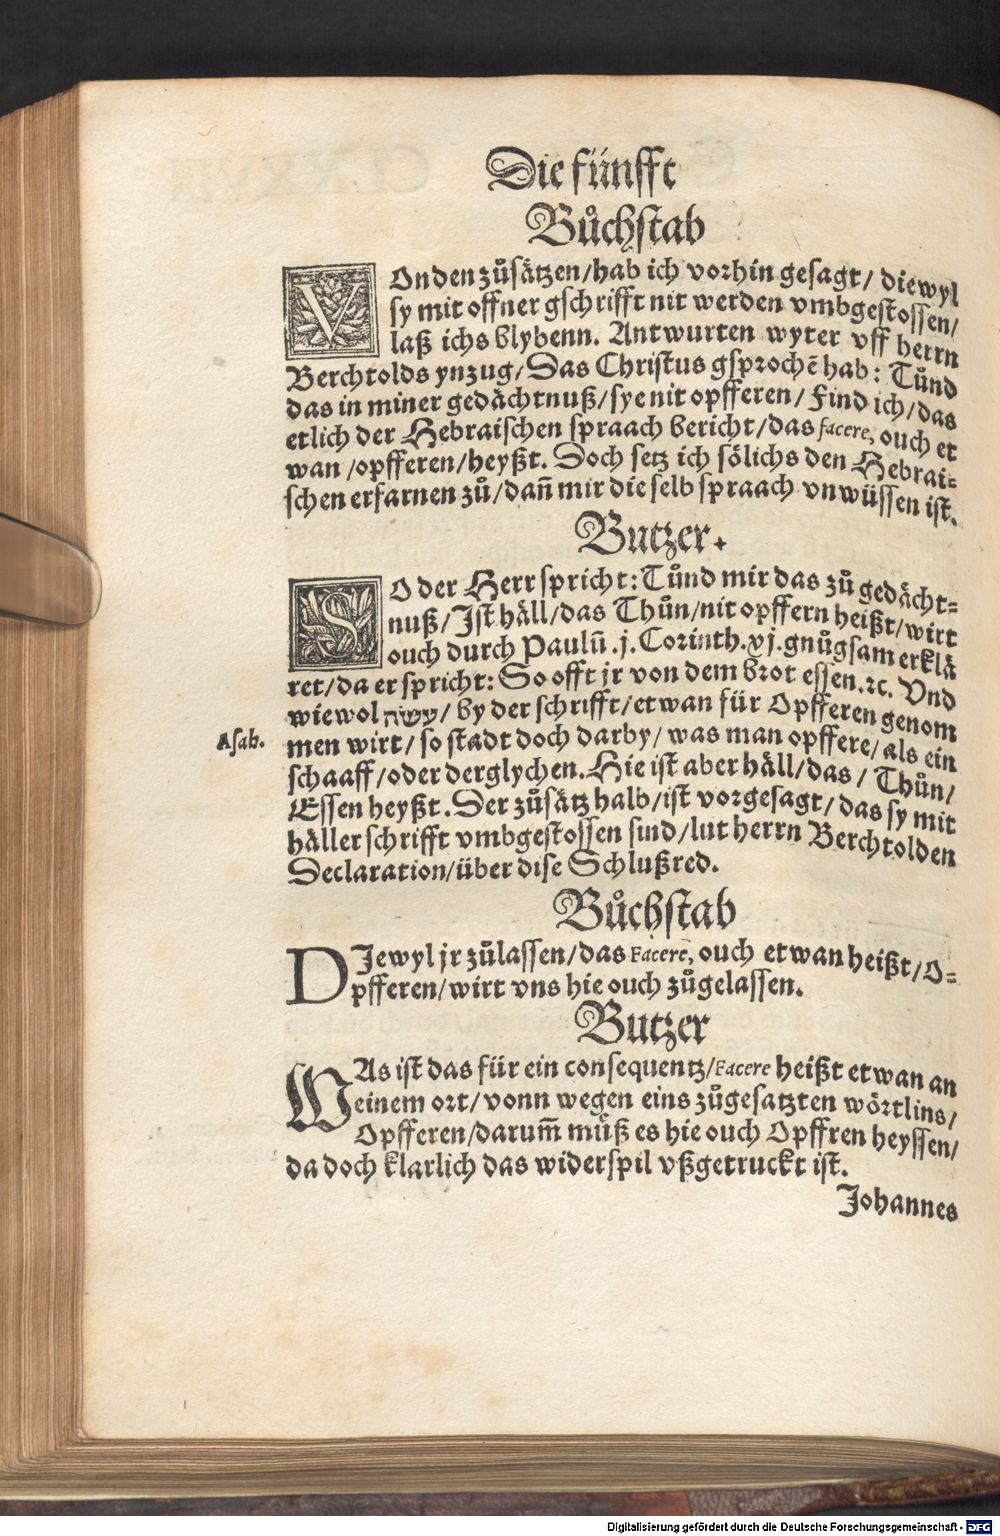 Die fünfft
Bůchstab
VOn den zůsätzen/hab ich vorhin gesagt/ diewyl
sy mit offner gschrifft nit werden vmbgestossen/
laß ichs blybenn. Antwurten wyter vff herrn
Berchtolds ynzug/Das Christus gsprochẽ hab: Tůnd
das in miner gedächtnuß/sye nit opfferen/ Find ich/das
etlich der Hebraischen spraach bericht/das facere, ouch et
wan /opfferen/heyßt. Doch setz ich sölichs den Hebrai⸗
schen erfarnen zů/dañ mir die selb spraach vnwüssen ist.
Butzer.
SO der Herr spricht: Tůnd mir das zů gedächt⸗
nuß/Ist häll/das Thůn/nit opffern heißt/wirt
ouch durch Paulũ .j. Corinth.xj.gnůgsam erklä
ret/da er spricht: So offt jr von dem brot essen.ꝛc. Vnd
wiewol עשה/ by der schrifft/etwan für Opfferen genom
Asab.
men wirt/ so stadt doch darby/ was man opffere/als ein
schaaff/oder derglychen. Hie ist aber häll/das/ Thůn/
Essen heyßt. Der zůsätz halb/ist vorgesagt/das sy mit
häller schrifft vmbgestossen sind/lut herrn Berchtolden
Declaration/über dise Schlußred.
Bůchstab
DJewyl jr zůlassen/das Facere, ouch etwan heißt/O⸗
pfferen/wirt vns hie ouch zůgelassen.
Butzer
WAs ist das für ein consequentz/Facere heißt etwan an
einem ort/vonn wegen eins zůgesatzten wörtlins/
Opfferen/darum̃ můß es hie ouch Opffren heyssen/
da doch klarlich das widerspil vßgetruckt ist.
Johannes
Digitalisierung gefördert durch die Deutsche Forschungsgemeinschaft - DFG